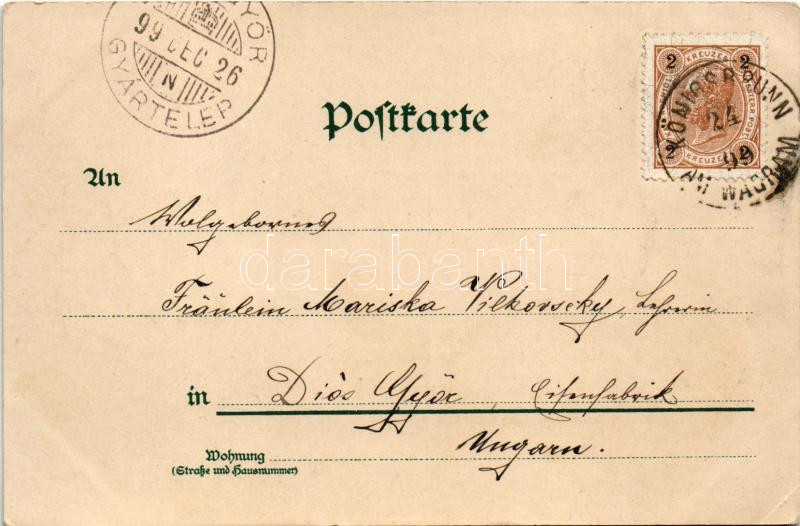 GYŐR
99 DEC 26
N
GYÁRTELEP
Postkarte
2 KREUZER 2
2 KREUZER 2
KÖNIGSBRUNN
24
99
AM WAGRAM
An
Wolgebornes
Fräulein Mariska Vilkovszky, Lehrerin
in Diós Győr, Eisenfabrik
Ungarn.
Wohnung
(Straße und Hausnummer)
darabanth